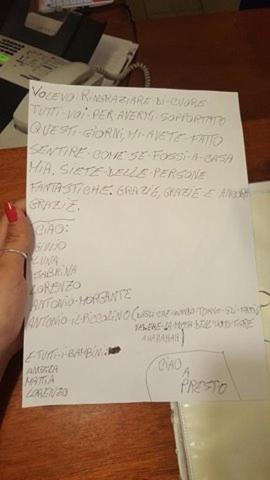 VOLEVO RINGRAZIARE DI CUORE
TUTTI VOI PER AVERMI SOPPORTATO
QUESTI GIORNI, MI AVETE FATTO
SENTIRE COME SE FOSSI A CASA
MIA. SIETE DELLE PERSONE
FANTASTICHE. GRAZIE, GRAZIE E ANCORA
GRAZIE.
CIAO:
GIULIO
LUNA
SABRINA
LORENZO
ANTONIO MORGANTE
ANTONIO IL PICCOLINO (
VEDERE LA MOSSA DELL'
AHAHAHAH)
E TUTTI I BAMBINI
ANGELA
MATTIA
LORENZO
CIAO
A
PRESTO